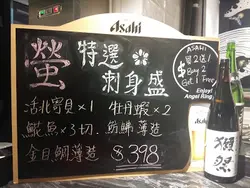 Asahi
螢 特選
刺身盛
活北寄貝×1 牡丹蝦×2
鰤魚×3切、魴鮄薄造
金目鯛薄造 $398
ASAHI
買2送1
Buy 2
Get 1 Free
Enjoy!
Angel Ring
獺祭